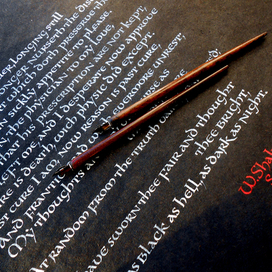 longing still
longer nurseth the
which doth preserve the
sickly appetite to please
physician to my love,
that his prescriptions are not kept,
left me and I desperate now approve
is death, which physic did except.
cure I am, now reason is past cure,
And Frantic evermore unrest,
My thoughts
At random from the truth
sworn thee fair and thought
thee bright,
as Black as hell, as dark as night.
W.Shak